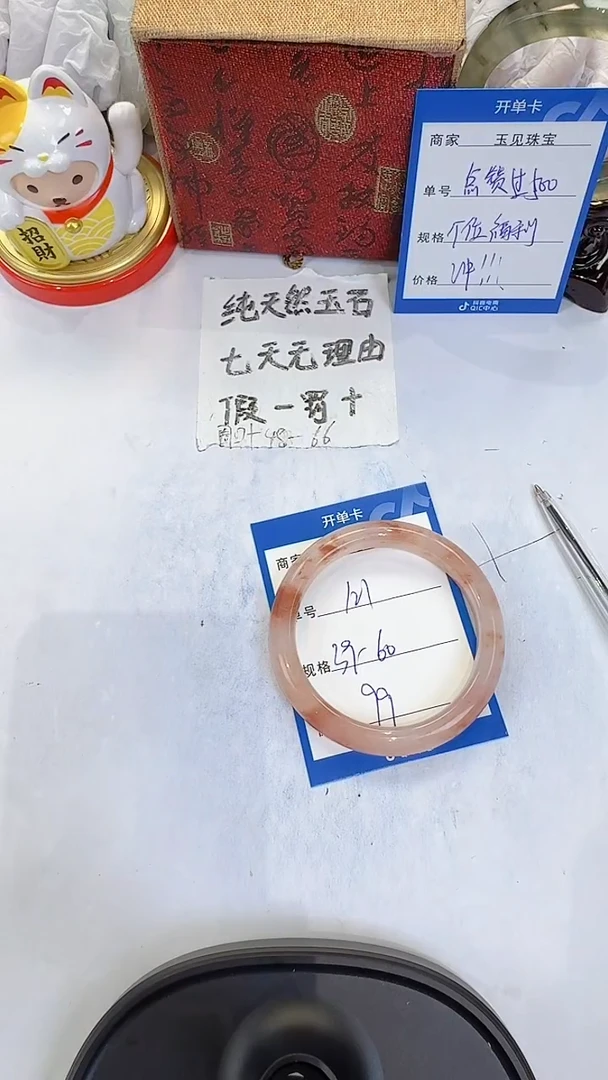 开单卡
商家 玉见珠宝
单号 点赞过500
规格 个位福利
价格 冲!!!
抖音电商
QIC中心
招財
纯天然玉石
七天无理由
假一罚十
圈口48-66
开单卡
商家
单号 121
规格 59-60
99